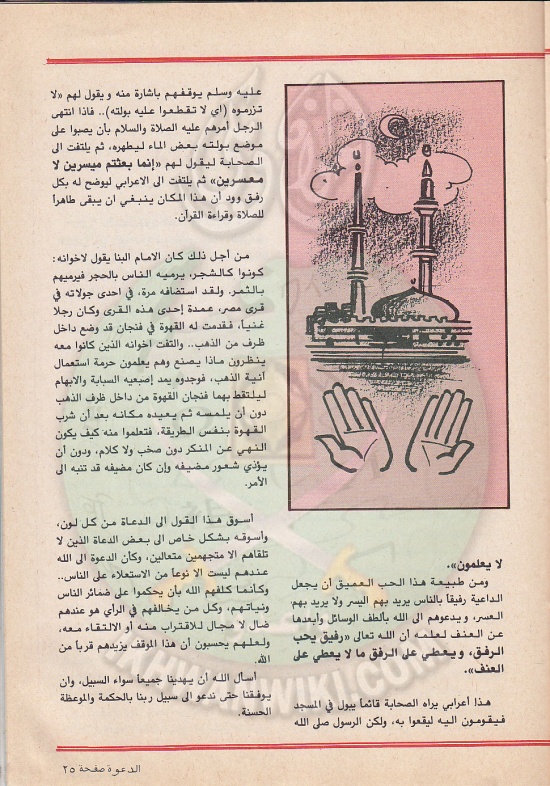 لا يعلمون».
ومن طبيعة هذا الحب العميق أن يجعل
الداعية رفيقاً بالناس يريد بهم اليسر ولا يريد بهم
العسر، ويدعوهم الى الله بألطف الوسائل وأبعدها
عن العنف لعلمه أن الله تعالى «رفيق يحب
الرفق، ويعطي على الرفق ما لا يعطي على
العنف».
هذا أعرابي يراه الصحابة قائماً يبول في المسجد
فيقومون اليه ليقعوا به، ولكن الرسول صلى الله
عليه وسلم يوقفهم باشارة منه ويقول لهم «لا
تزرموه (اي لا تقطعوا عليه بولته).. فاذا انتهى
الرجل أمرهم عليه الصلاة والسلام بأن يصبوا على
موضع بولته بعض الماء ليطهره، ثم يلتفت الى
الصحابة ليقول لهم «إنما بعثتم ميسرين لا
معسرين» ثم يلتفت الى الاعرابي ليوضح له بكل
رفق وود أن هذا المكان ينبغي ان يبقى طاهراً
للصلاة وقراءة القرآن.
من أجل ذلك كان الامام البنا يقول لاخوانه:
كونوا كالشجر، يرميه الناس بالحجر فيرميهم
بالثمر. ولقد استضافه مرة، في احدى جولاته في
قرى مصر، عمدة إحدى هذه القرى وكان رجلا
غنياً، فقدمت له القهوة في فنجان قد وضع داخل
ظرف من الذهب.. والتفت اخوانه الذين كانوا معه
ينظرون ماذا يصنع وهم يعلمون حرمة استعمال
آنية الذهب، فوجدوه يمد إصبعيه السبابة والابهام
ليلتقط بهما فنجان القهوة من داخل ظرف الذهب
دون أن يلمسه ثم يعيده مكانه بعد أن شرب
القهوة بنفس الطريقة. فتعلموا منه كيف يكون
النهي عن المنكر دون صخب ولا كلام، ودون أن
يؤذي شعور مضيفه وإن كان مضيفه قد تنبه الى
الأمر.
أسوق هذا القول الى الدعاة من كل لون،
وأسوقه بشكل خاص الى بعض الدعاة الذين لا
تلقاهم الا متجهمين متعالين، وكأن الدعوة الى الله
عندهم ليست الا نوعاً من الاستعلاء على الناس..
وكأنما كلفهم الله بأن يحكموا على ضمائر الناس
ونياتهم، وكل من يخالفهم في الرأي هو عندهم
ضال لا مجال للاقتراب منه أو الالتقاء معه،
ولعلهم يحسبون أن هذا الموقف يزيدهم قرباً من
الله.
أسأل الله أن يهدينا جميعاً سواء السبيل، وان
يوفقنا حتى ندعو الى سبيل ربنا بالحكمة والموعظة
الحسنة.
الدعوة صفحة ٢٥
IKHWANWIKI.COM